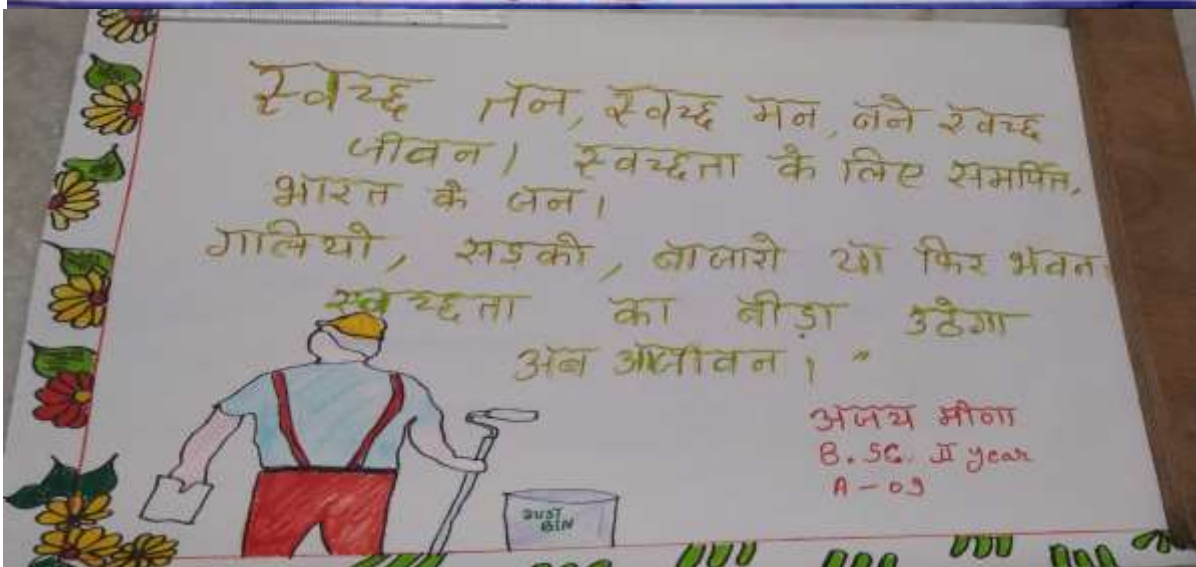 स्वच्छ तन, स्वच्छ मन, बने स्वच्छ
जीवन। स्वच्छता के लिए समर्पित,
भारत के जन।
गालियो, सड़को, बाजारो या फिर भवन।
स्वच्छता का बीड़ा उठेगा
अब आजीवन। "
अजय मीना
B.SC. II year
A-09
DUST
BIN